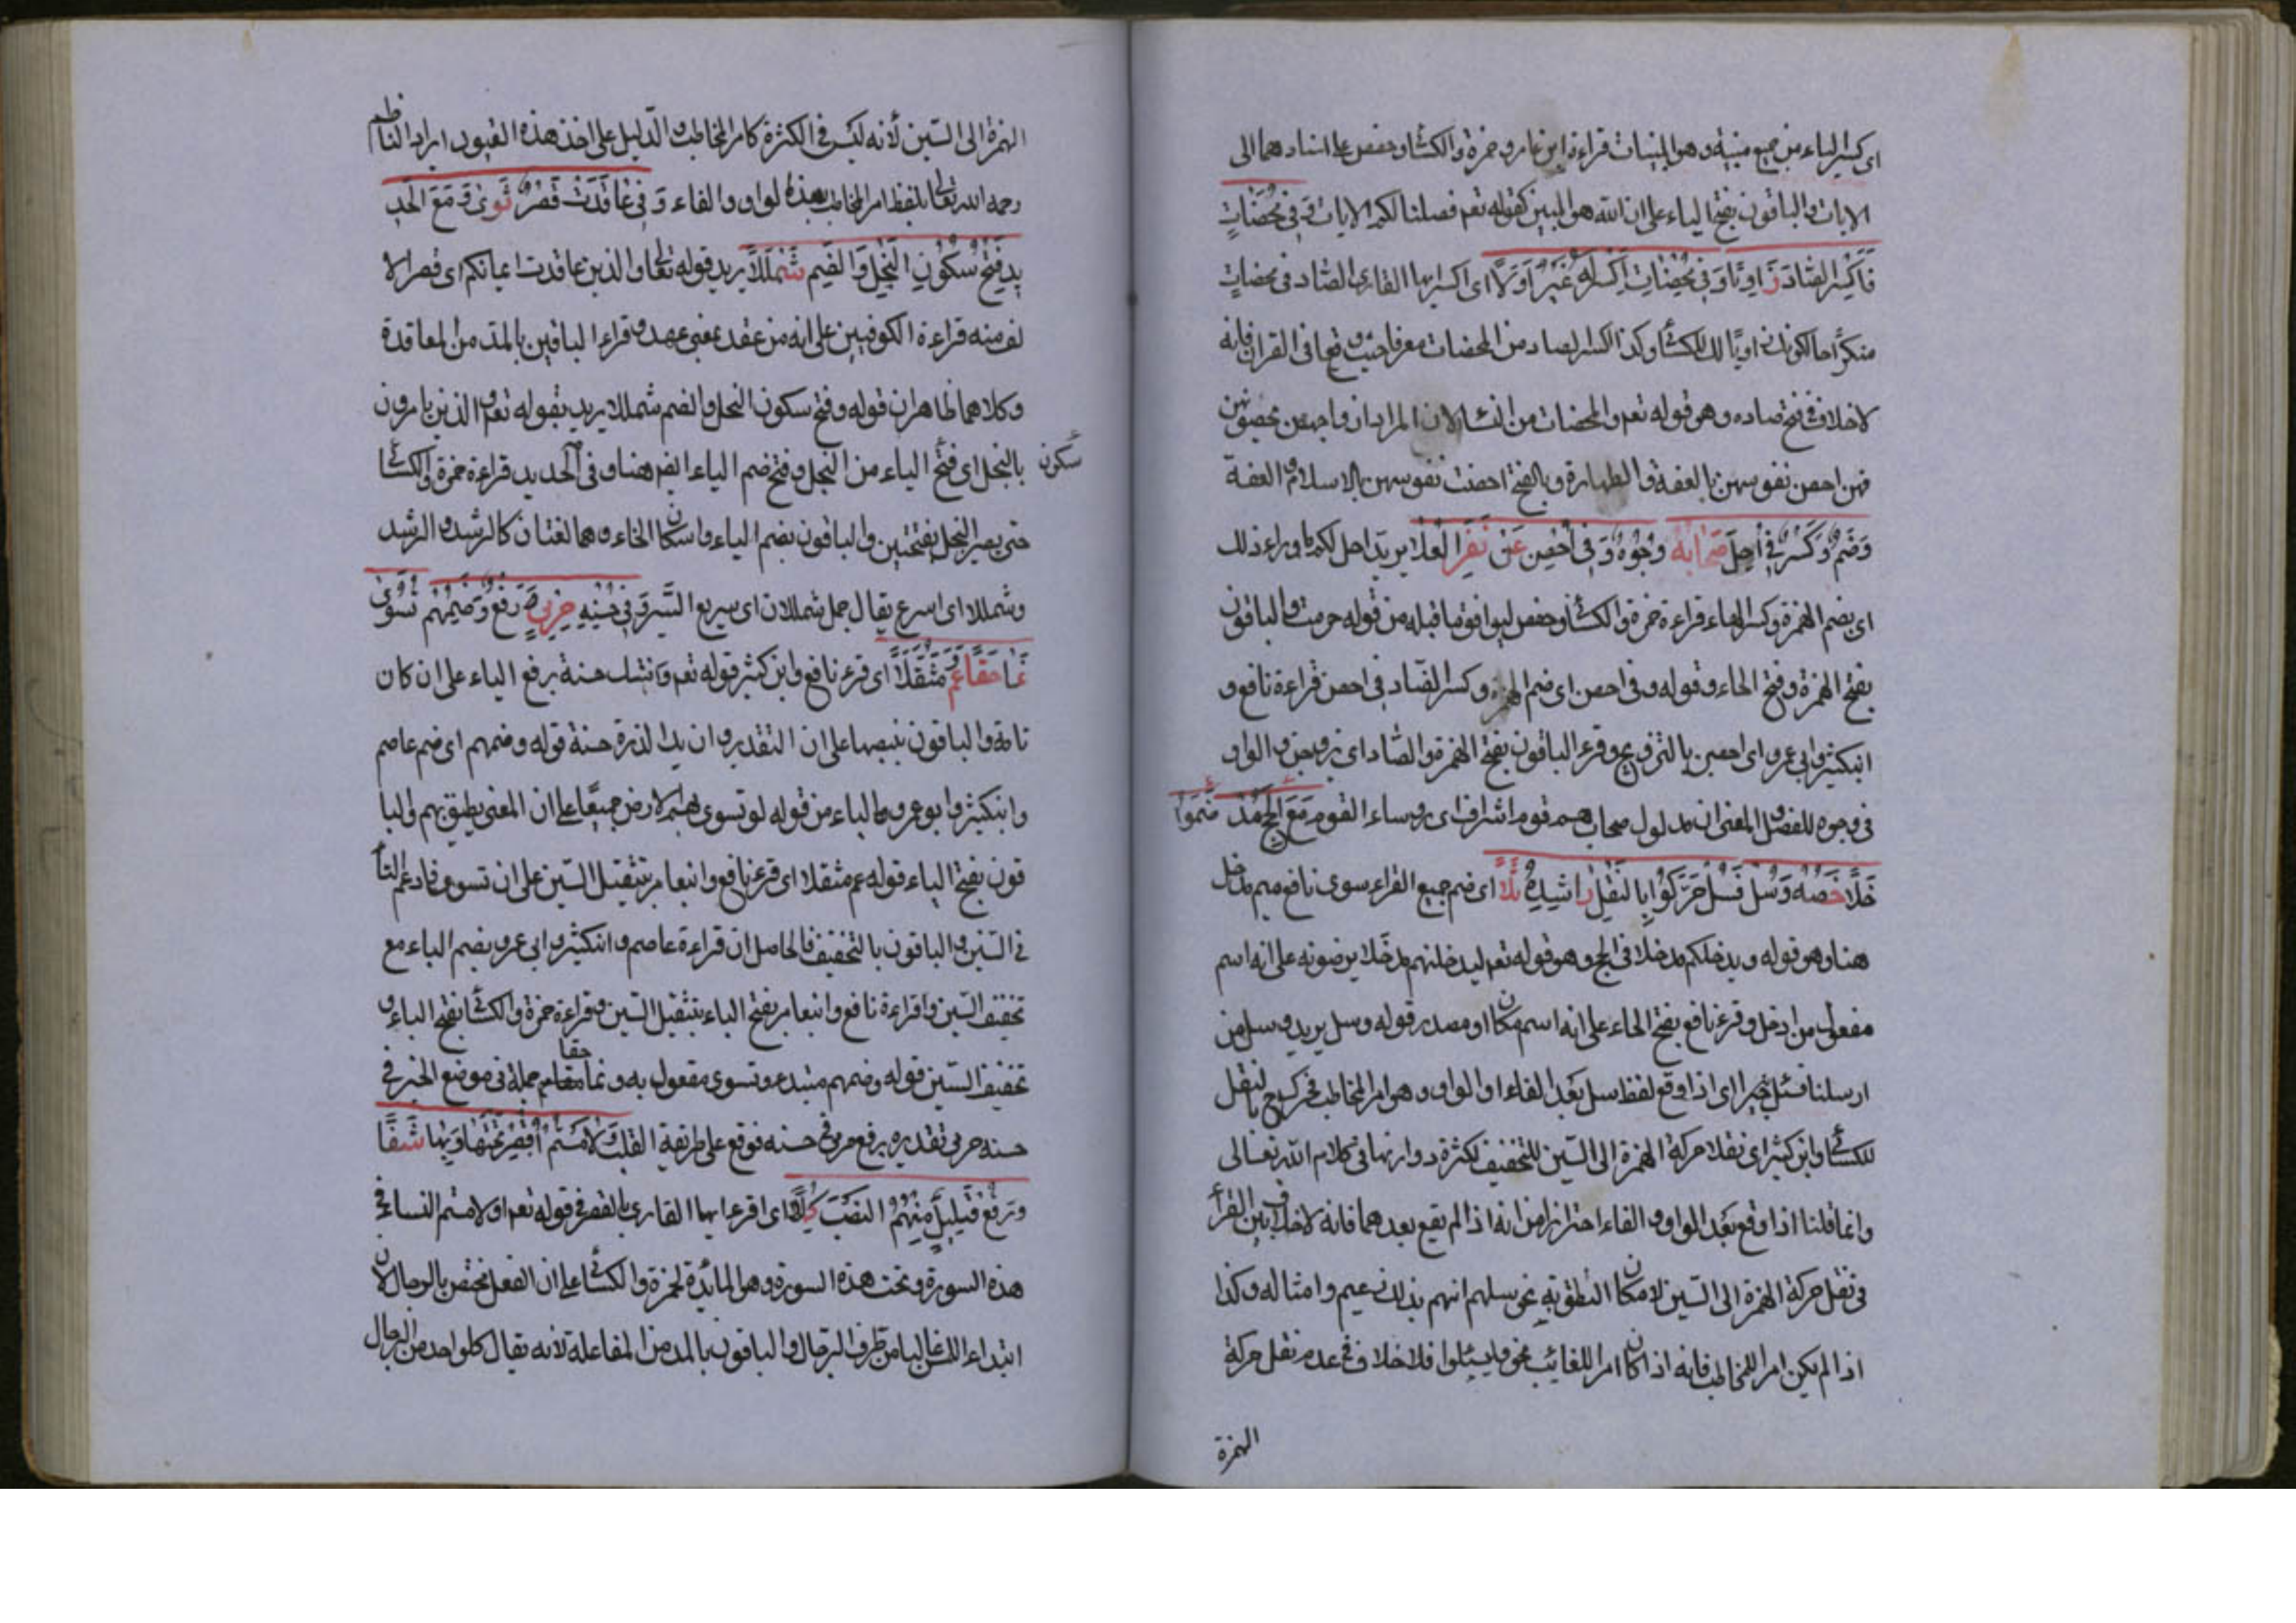 اى كسر الياء من جميع مبينة وهو المبينات قراءة ابن عامر وحمزة والكسائى وحفص على اسنادهما الى
الايات والباقون بفتح الياء على ان الله هو المبين كقوله تعم فصلنا لكم الايات وَفِى مُحْصَنَاتٍ
فَاكْسِرِ الصَّادَ رَاوِيًا وَفِى مُحْصَنَاتِ اكْسِرْ لَهُ غَيْرَ اَوَّلَا اى اكسر ايها القارى الصاد فى محصنات
منكرا حالكونك راويا لك للكسائى وكذا اكسر الصاد من المحصنات معرفا حيث وقع فى القران فانه
لا خلاف فى فتح صاده وهو قوله تعم والمحصنات من النساء لان المراد ازواجهن يحصنونهن
فهن احصن نفوسهن بالعفة والطهارة وبالفتح احصنت نفوسهن بالاسلام والعفة
وَضَمٌّ وَكَسْرٌ فِى اُحِلَّ صِحَابُهُ وُجُوهٌ وَفِى اُحْصِنَ عَنْ نَفَرِ الْعُلَا يريد احل لكم ما وراء ذلك
اى بضم الهمزة وكسر الحاء قراءة حمزة والكسائى وحفص ليوافق ما قبله من قوله حرمت والباقون
بفتح الهمزة وفتح الحاء وقوله وفى احصن اى ضم الهمزة وكسر الصاد فى احصن قراءة نافع و
ابنكثير وابى عمرو اى احصن بالتزويج وقرء الباقون بفتح الهمزة والصاد اى زوجهن والواو
فى وجوه للفصل والمعنى ان مدلول صحاب هم قوم اشراف اى رؤساء القوم مَعَ الْحَجِّ ضَمُّوا مُدْ
خَلًا خَصَّهُ وَسُلْ فَسُلْ حَرَّكُوا بِالنَّقْلِ رَاشِدُهُ دَلَا اى ضم جميع القراء سوى نافع ميم مدخل
هنا وهو قوله ويدخلكم مدخلا فى الحج وهو قوله تعم ليدخلنهم مدخلا يرضونه على انه اسم
مفعول من ادخل وقرء نافع بفتح الحاء على انه اسم مكان او مصدر قوله وسل يريد وسل من
ارسلنا فسئل خبيرا اى اذا وقع لفظ سل بعد الفاء او الواو وهو امر المخاطب فحرك بالنقل
للكسائى وابن كثير اى نقلا حركة الهمزة الى السين للتخفيف لكثرة دوارنها فى كلام الله تعالى
وانما قلنا اذا وقع بعد الواو والفاء احترازا من انه اذا لم يقع بعدهما فانه لا خلاف بين القراء
فى نقل حركة الهمزة الى السين لامكان النطق به نحو سلهم ايهم بذلك زعيم وامثاله وكذا
اذا لم يكن امرا للمخاطب فانه اذا كان امرا للغائب نحو وليسئلوا فلا خلاف فى عدم نقل حركة
الهمزة
الهمزة الى السين لأنه ليس فى الكثرة كامر المخاطب والدليل على اخذ هذه القيود ايراد الناظم
رحمه الله تعالى بلفظ امر المخاطب بهذه الواو والفاء وَفِى عَاقَدَتْ قَصْرٌ ثَوَى وَمَعَ الْحَدِ
يدِ فَتْحُ سُكُونِ الْبُخْلِ وَالضَّمِّ شَمْلَلَا يريد قوله تعالى والذين عاقدت ايمانكم اى قصر الا
لف منه قراءة الكوفيين على انه من عقد بمعنى عهد وقراء الباقين بالمد من المعاقدة
وكلاهما ظاهران قوله وفتح سكون البخل والضم شمللا يريد بقوله تعم والذين يامرون
بالبخل اى فتح الياء من البخل وفتح ضم الياء ايضا هنا وفى الحديد قراءة حمزة والكسائى
سكون
حتى يصير البخل بفتحتين والباقون بضم الياء واسكان الخاء وهما لغتان كالرشد والرشد
وشمللا اى اسرع يقال جمل شملال اى سريع السير وَفِى حَسَنَهْ حِرْمِىُّ رَفْعٍ وَضَمُّهُمْ تُسَوَّى
نَمَا حَقًّا وَعَمَّ مُثَقَّلَا اى قرء نافع وابن كثير قوله تعم وان تك حسنة برفع الياء على ان كان
تامة والباقون بنصبها على ان التقدير وان يك الذرة حسنة قوله وضمهم اى ضم عاصم
وابنكثير وابو عمرو الباء من قوله لو تسوى بهم الارض جميعا على ان المعنى يطبق بهم والبا
قون بفتح الياء قوله عم مثقلا اى قرء نافع وابنعامر بتثقيل السين على ان تسوى فادغم التاء
فى السين والباقون بالتخفيف فالحاصل ان قراءة عاصم وابنكثير وابى عمرو بضم الباء مع
تخفيف السين واقراءة نافع وابنعامر بفتح الياء بتثقيل السين وقراءة حمزة والكسائى بفتح الباء و
تخفيف السين قوله وضمهم مبتدء وتسوى مفعول به ونما حقا جملة فى موضع الخبر فى
حسنه حرمى تقديره برفع حرمى حسنه فوقع على طريقة القلب وَلَامَسْتُمُ اقْصُرْ تَحْتَهَا وَبِهَا شَفَا
وَرَفْعُ قَلِيلٌ مِنْهُمُ النَّصْبَ كُلِّلَا اى اقرء ايها القارى بالقصر فى قوله تعم او لامستم النساء فى
هذه السورة وتحت هذه السورة وهو المائدة لحمزة والكسائى على ان الفعل مختص بالرجال لان
ابتداء اللمس غالبا من طرف الرجال والباقون بالمد من المفاعلة لانه يقال كل واحد من الرجال